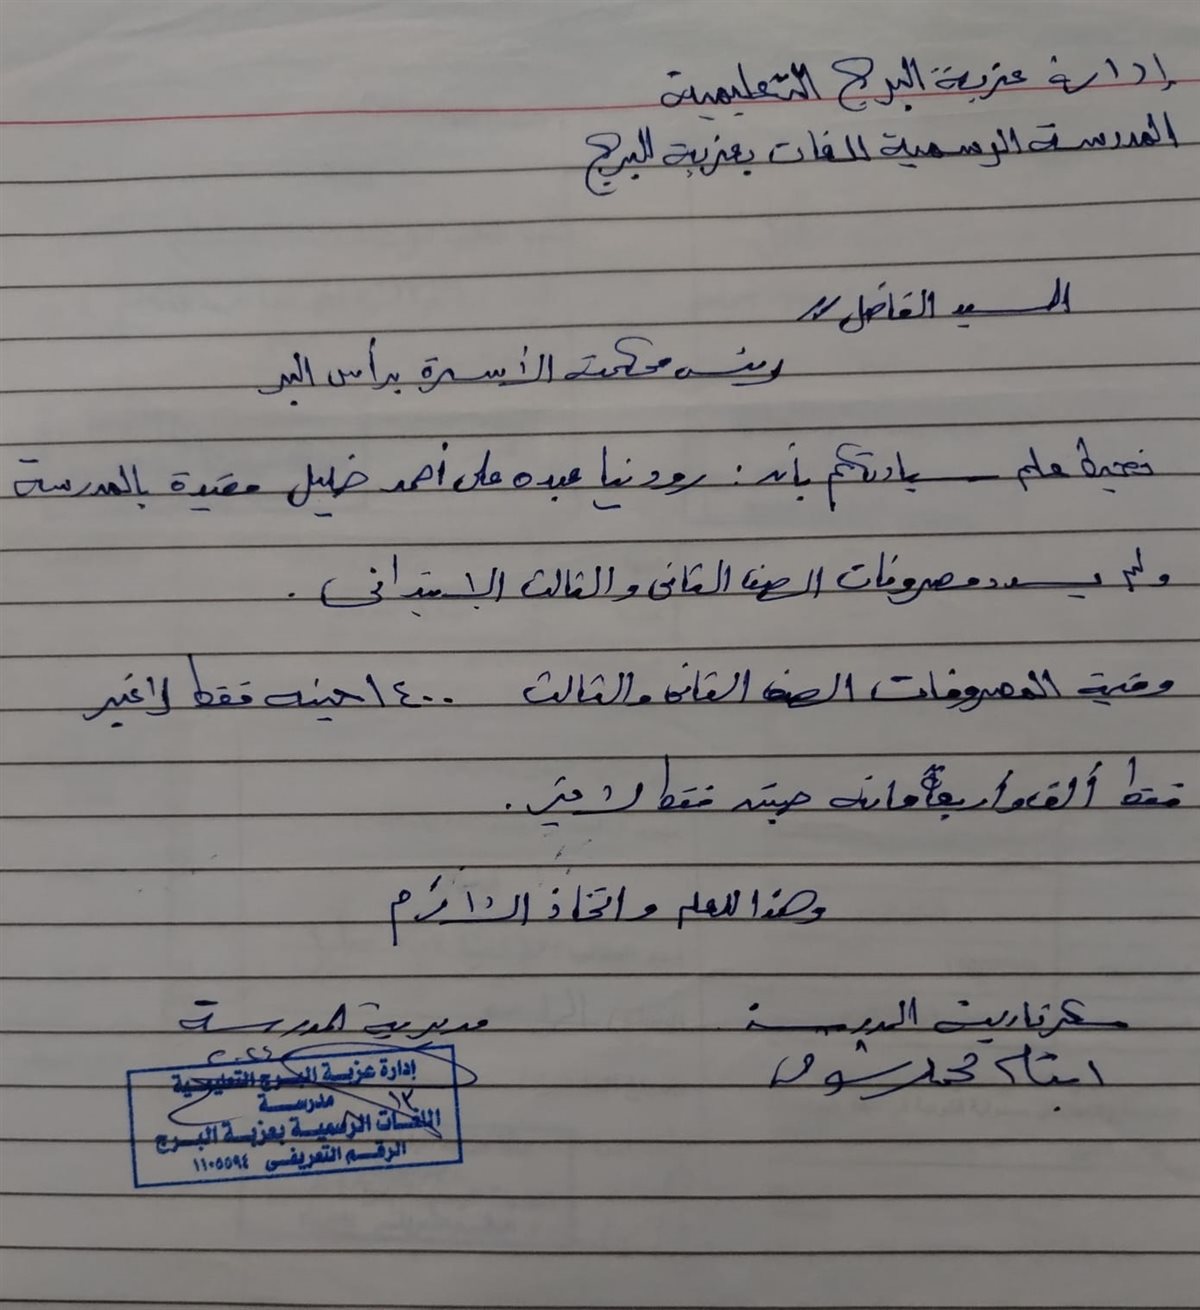 إدارة عزبة البرج التعليمية
المدرسة الرسمية للغات بعزبة البرج
السيد الفاضل //
رئيس محكمة الأسرة برأس البر
نحيط علم سيادتكم بأنه : رودينا عبده على أحمد خليل مقيدة بالمدرسة
ولم يسدد مصروفات الصف الثانى والثالث الابتدائى .
وقيمة المصروفات الصف الثانى والثالث ١٤٠٠ جنيه فقط لا غير
فقط ألف وأربعمائه جنيه فقط لا غير .
وهذا للعلم واتخاذ اللازم
سكرتارية المدرسة
مديرية المدرسة
ابتسام محمد
إدارة عزبة البرج التعليمية
مدرسة
اللغات الرسمية بعزبة البرج
الرقم التعريفى ١١٠٥٥٩٤